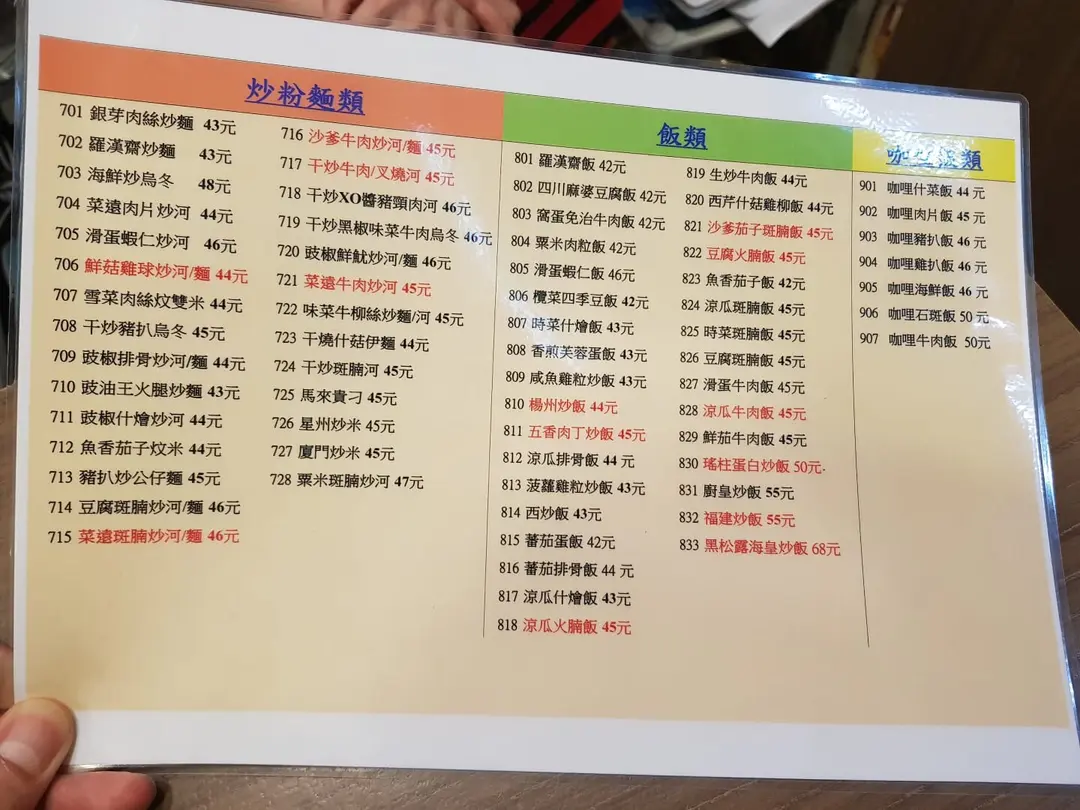 炒粉麵類
701 銀芽肉絲炒麵 43元
702 羅漢齋炒麵 43元
703 海鮮炒烏冬 48元
704 菜遠肉片炒河 44元
705 滑蛋蝦仁炒河 46元
706 鮮菇雞球炒河/麵 44元
707 雪菜肉絲炆雙米 44元
708 干炒豬扒烏冬 45元
709 豉椒排骨炒河/麵 44元
710 豉油王火腿炒麵 43元
711 豉椒什燴炒河 44元
712 魚香茄子炆米 44元
713 豬扒炒公仔麵 45元
714 豆腐斑腩炒河/麵 46元
715 菜遠斑腩炒河/麵 46元
716 沙爹牛肉炒河/麵 45元
717 干炒牛肉/叉燒河 45元
718 干炒XO醬豬頸肉河 46元
719 干炒黑椒味菜牛肉烏冬 46元
720 豉椒鮮魷炒河/麵 46元
721 菜遠牛肉炒河 45元
722 味菜牛柳絲炒麵/河 45元
723 干燒什菇伊麵 44元
724 干炒斑腩河 45元
725 馬來貴刁 45元
726 星州炒米 45元
727 廈門炒米 45元
728 粟米斑腩炒河 47元
飯類
801 羅漢齋飯 42元
802 四川麻婆豆腐飯 42元
803 窩蛋免治牛肉飯 42元
804 粟米肉粒飯 42元
805 滑蛋蝦仁飯 46元
806 欖菜四季豆飯 42元
807 時菜什燴飯 43元
808 香煎芙蓉蛋飯 43元
809 咸魚雞粒炒飯 43元
810 楊州炒飯 44元
811 五香肉丁炒飯 45元
812 涼瓜排骨飯 44 元
813 菠蘿雞粒炒飯 43元
814 西炒飯 43元
815 蕃茄蛋飯 42元
816 蕃茄排骨飯 44 元
817 涼瓜什燴飯 43元
818 涼瓜火腩飯 45元
819 生炒牛肉飯 44元
820 西芹什菇雞柳飯 44元
821 沙爹茄子斑腩飯 45元
822 豆腐火腩飯 45元
823 魚香茄子飯 42元
824 涼瓜斑腩飯 45元
825 時菜斑腩飯 45元
826 豆腐斑腩飯 45元
827 滑蛋牛肉飯 45元
828 涼瓜牛肉飯 45元
829 鮮茄牛肉飯 45元
830 瑤柱蛋白炒飯 50元
831 廚皇炒飯 55元
832 福建炒飯 55元
833 黑松露海皇炒飯 68元
類
901 咖哩什菜飯 44 元
902 咖哩肉片飯 45 元
903 咖哩豬扒飯 46 元
904 咖哩雞扒飯 46 元
905 咖哩海鮮飯 46 元
906 咖哩石斑飯 50 元
907 咖哩牛肉飯 50元